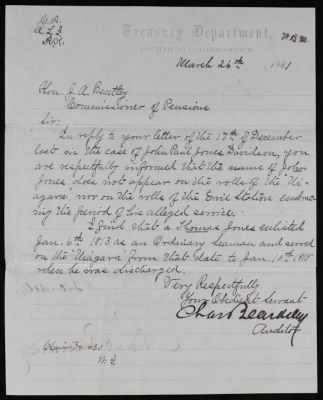 Treasury Department,
FOURTH AUDITOR'S OFFICE,
March 26th 1881
Hon. J. A. Bentley
Commissioner of Pensions
Sir:
In reply to your letter of the 17th of December
last in the case of John Paul Jones Davidson, you
are respectfully informed that the name of John
Jones does not appear on the rolls of the Ni-
agara, nor on the rolls of the Erie Station embrac-
ing the period of his alleged service.
I find that a Thomas Jones enlisted
Jan. 6th 1813 as an Ordinary Seaman and served
on the "Niagara" from that date to Jan. 10th 1815
when he was discharged.
Very Respectfully
Your Obedient Servant
Chas Beardsley
Auditor